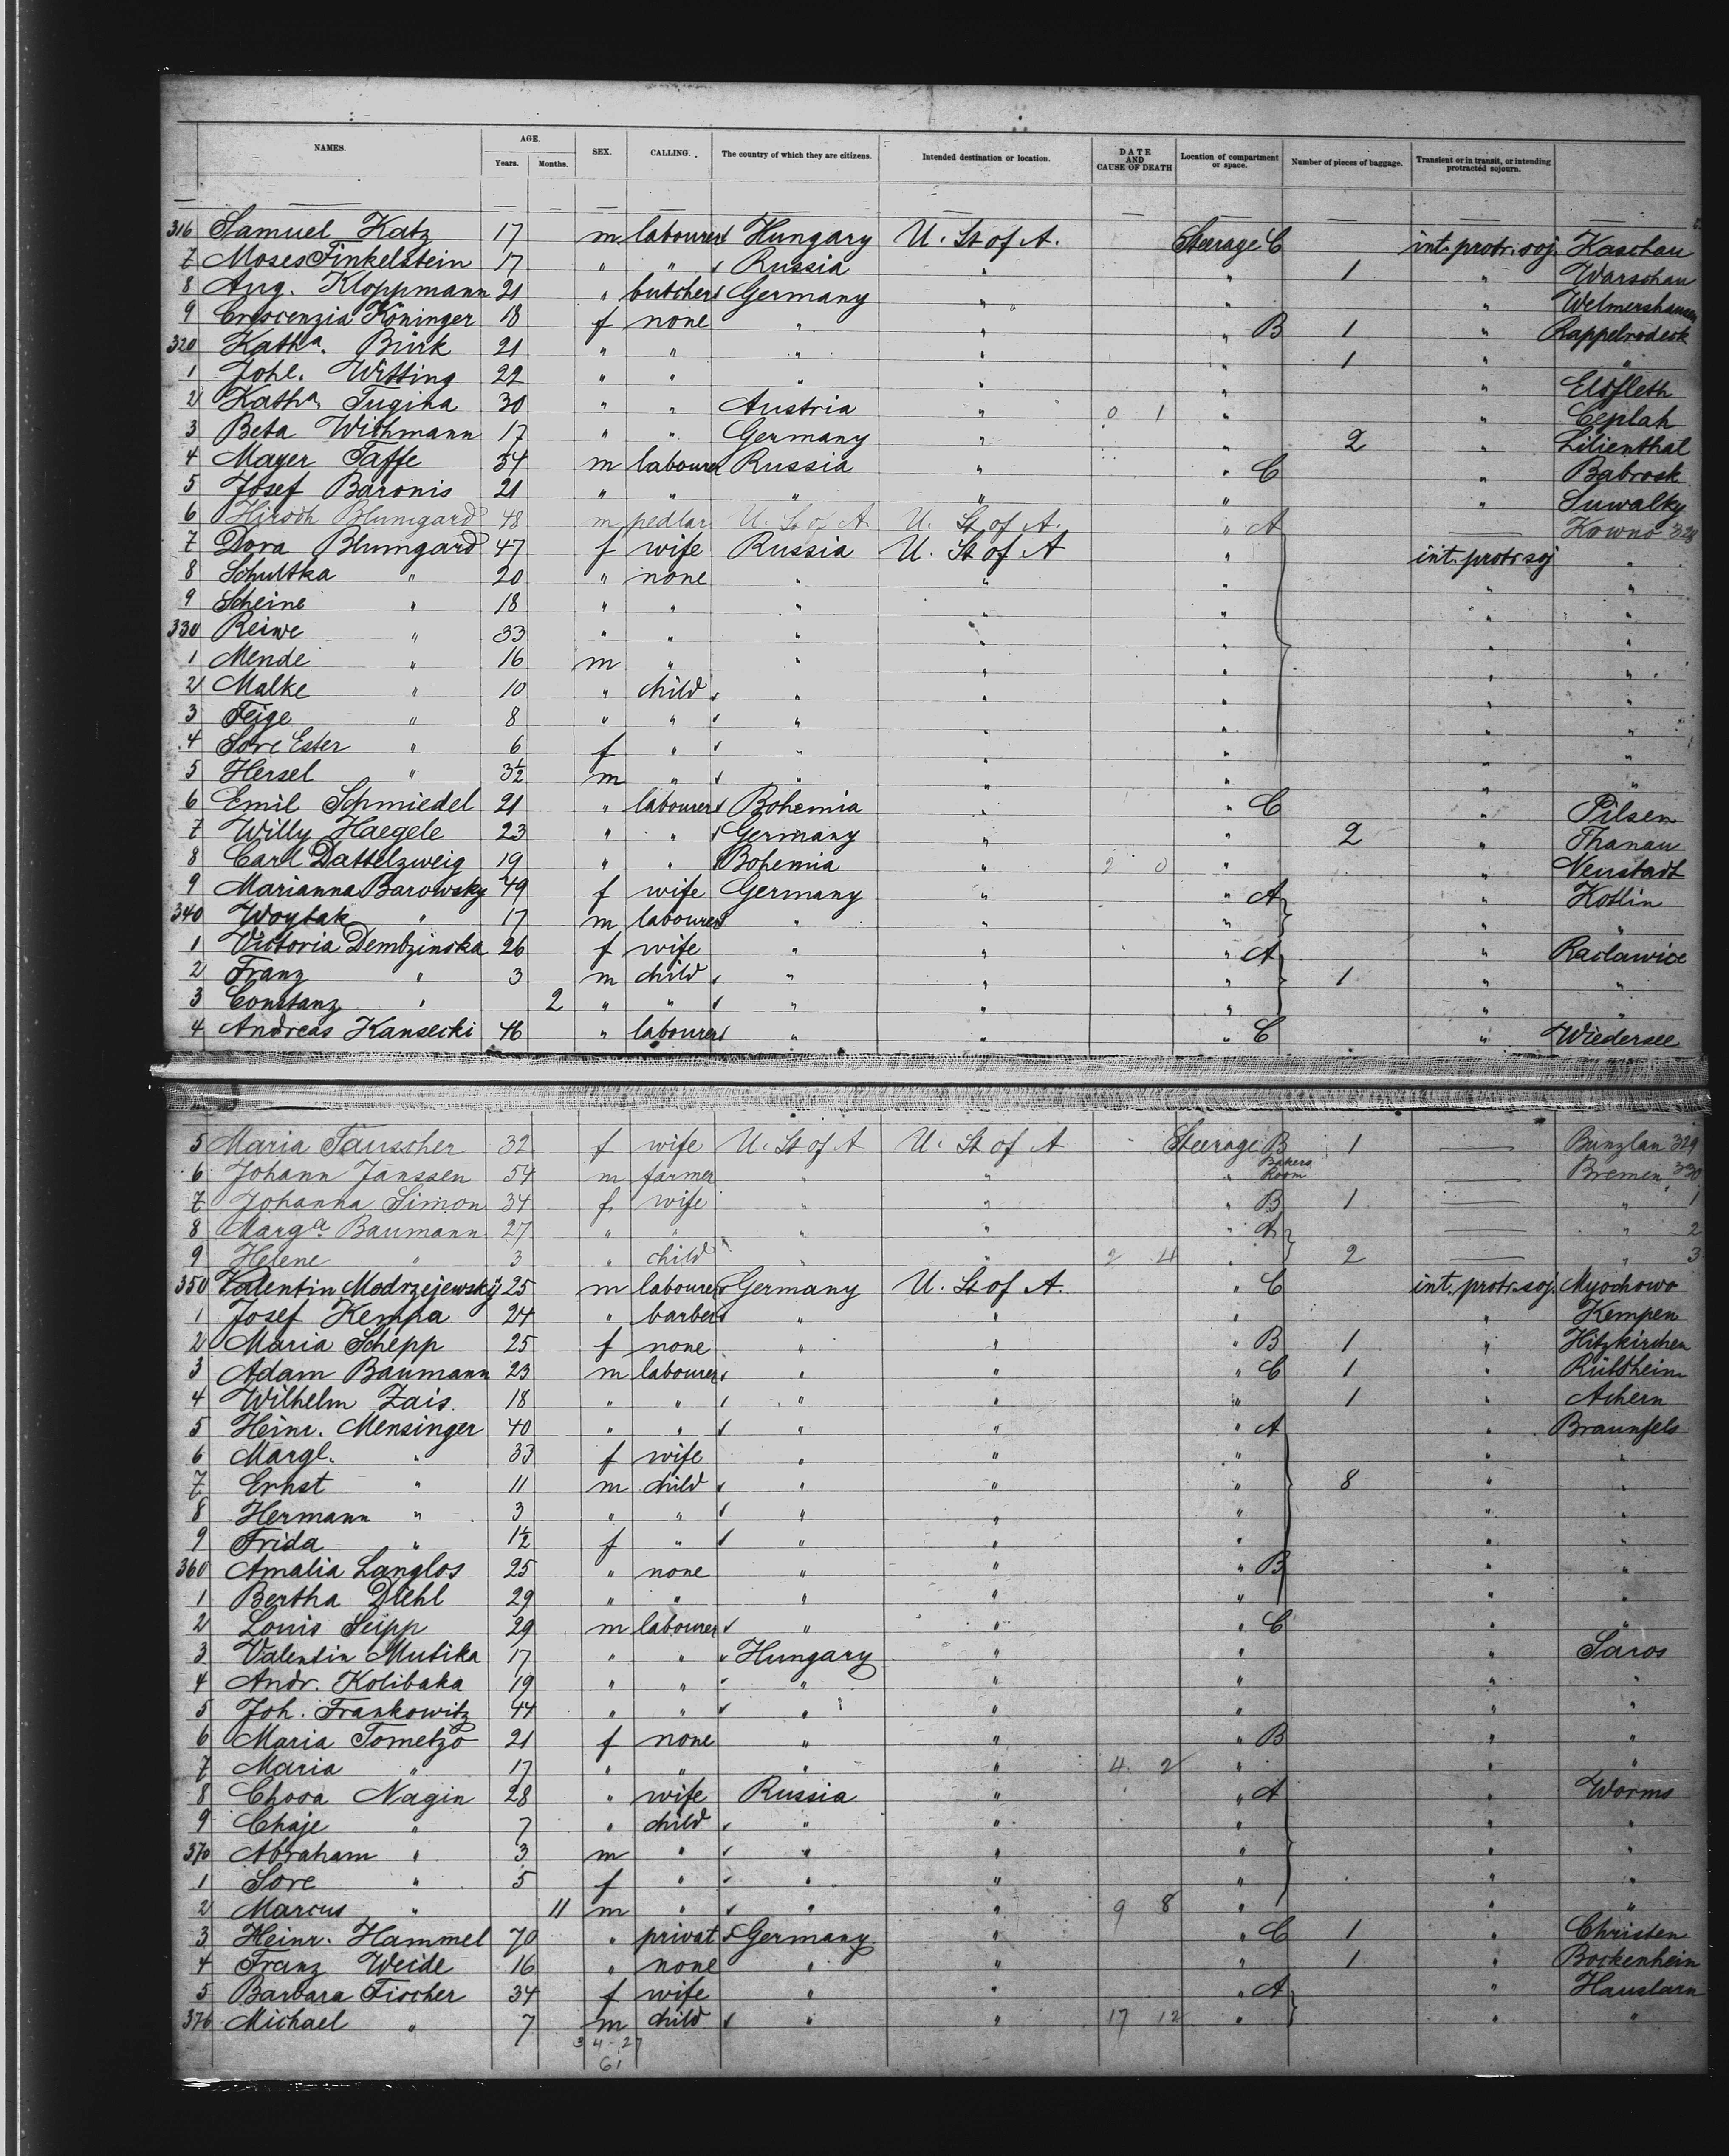 NAMES. AGE. Years. Months. SEX. CALLING. The country of which they are citizens. Intended destination or location. DATE AND CAUSE OF DEATH Location of compartment or space. Number of pieces of baggage. Transient or in transit, or intending protracted sojourn.
316 Samuel Katz 17 m labourer Hungary U. St of A. Steerage C int. protr. soj. Kaschau
7 Moses Finkelstein 17 " " Russia " " 1 " Warschau
8 Aug. Kloppmann 21 " butcher Germany " " " Welmershausen
9 Crescenzia Köninger 18 f none " " " B 1 " Kappelrodeck
320 Katha. Bürk 21 " " " " " 1 " "
1 Johe. Witting 22 " " " " " " Elsfleth
2 Katha. Tugiha 30 " " Austria " 0 1 " " Ceplah
3 Beta Withmann 17 " " Germany " " 2 " Lilienthal
4 Mayer Taffe 34 m labourer Russia " " C " Babrosk
5 Josef Baronis 21 " " " " " " Suwalky
6 Hirsch Blumgard 48 m pedlar U. St of A. U. St of A. " A Kowno 328
7 Dora Blumgard 47 f wife Russia U. St of A " int. protr. soj "
8 Schultka " 20 " none " " " " "
9 Scheine " 18 " " " " " " "
330 Reiwe " 33 " " " " " " "
1 Mende " 16 m " " " " " "
2 Malke " 10 " child " " " " "
3 Feige " 8 " " " " " " "
4 Sore Ester " 6 f " " " " " "
5 Hersel " 3½ m " " " " " "
6 Emil Schmiedel 21 " labourer Bohemia " " C " Pilsen
7 Willy Haegele 23 " " Germany " " 2 " Thanau
8 Carl Dattelzweig 19 " " Bohemia " 2 0 " " Neustadt
9 Marianna Barowsky 49 f wife Germany " " A " Kotlin
340 Woytak " 17 m labourer " " " " "
1 Victoria Dembzinska 26 f wife " " " A " Raclawice
2 Franz " 3 m child " " " 1 " "
3 Constanz " 2 " " " " " " "
4 Andreas Kansecki 46 " labourer " " " C " Wiedersee
5 Maria Tauscher 32 f wife U. St of A U. St of A Steerage B 1 Bunzlau 329
6 Johann Janssen 54 m farmer " " " Bakers Room Bremen 330
7 Johanna Simon 34 f wife " " " B 1 " 1
8 Marga. Baumann 27 " " " " " A " 2
9 Helene " 3 " child " " 2 4 " 2 " 3
350 Valentin Modrzejewsky 25 m labourer Germany U. St of A. " C int. protr. soj. Myochowo
1 Josef Kempa 24 " barber " " " " Kempen
2 Maria Schepp 25 f none " " " B 1 " Hitzkirchen
3 Adam Baumann 23 m labourer " " " C 1 " Rüdsheim
4 Wilhelm Zais. 18 " " " " " 1 " Achern
5 Heinr. Mensinger 40 " " " " " A " Braunfels
6 Margl. " 33 f wife " " " " "
7 Ernst " 11 m child " " " 8 " "
8 Hermann " 3 " " " " " " "
9 Frida " 1½ f " " " " " "
360 Amalia Langlos 25 " none " " " B " "
1 Bertha Diehl 29 " " " " " " "
2 Louis Seipp 29 m labourer " " " C " "
3 Valentin Mutika 17 " " Hungary " " " Saros
4 Andr. Kolibaka 19 " " " " " " "
5 Joh. Frankowitz 44 " " " " " " "
6 Maria Tometzo 21 f none " " " B " "
7 Maria " 17 " " " " 4 2 " " "
8 Chosa Nagin 28 " wife Russia " " A " Worms
9 Chaje " 7 " child " " " " "
370 Abraham " 3 m " " " " " "
1 Sore " 5 f " " " " " "
2 Marcus " 11 m " " " 9 8 " " "
3 Heinr. Hammel 70 " privat Germany " " C 1 " Christen
4 Franz Weide 16 " none " " " 1 " Bockenheim
5 Barbara Fischer 34 f wife " " " A " Hauslarn
376 Michael " 7 m child " " 17 12 " " "
34-27
61